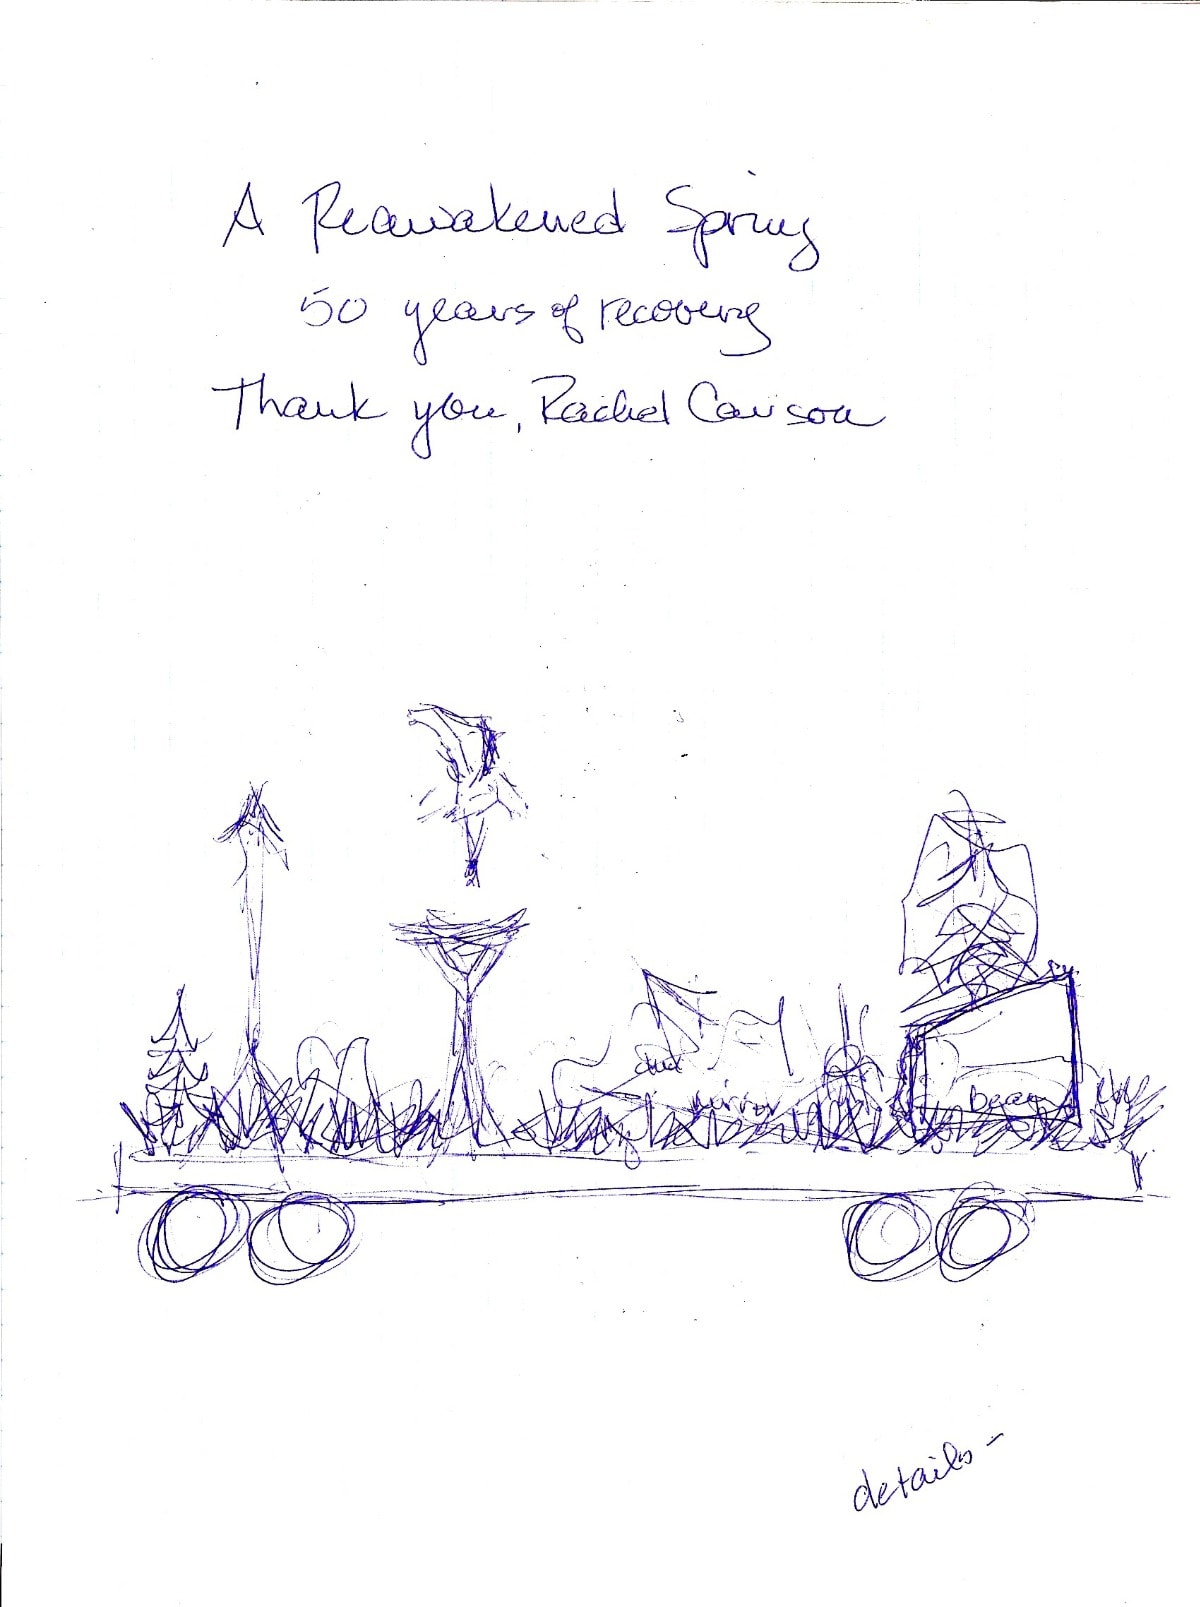 A Reawakened Spring
50 years of recovery
Thank you, Rachel Carson
mirror
details -